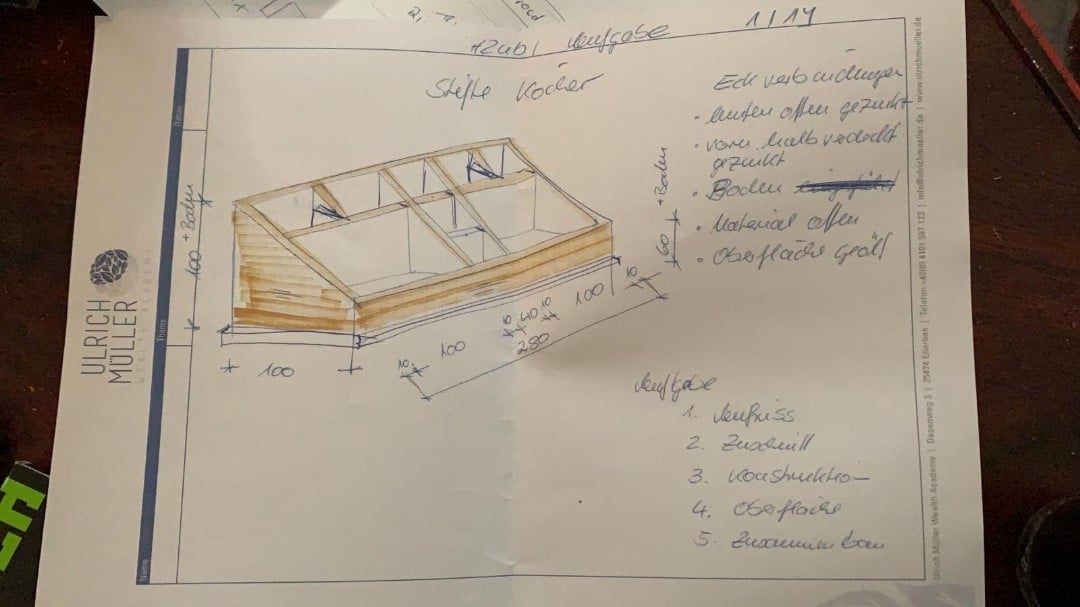 Aufgabe
1/14
Stifte Köcher
Eckverbindungen
• hinten offen gezinkt
• vorn halbverdeckt
gezinkt
• Boden
• Material offen
• Oberfläche geölt
100 + Boden
60 + Boden
100
10
100
10
40
10
100
10
280
Aufgabe
1. Aufriss
2. Zuschnitt
3. Konstruktion
4. Oberfläche
5. Zusammenbau
ULRICH
MÜLLER
WEALTH ACADEMY
Datum
Thema
Name
Ulrich Müller Wealth Academy | Dasenweg 3 | 25474 Ellerbek | Telefon +49(0) 4101 587 173 | info@ulrichmueller.de | www.ulrichmueller.de